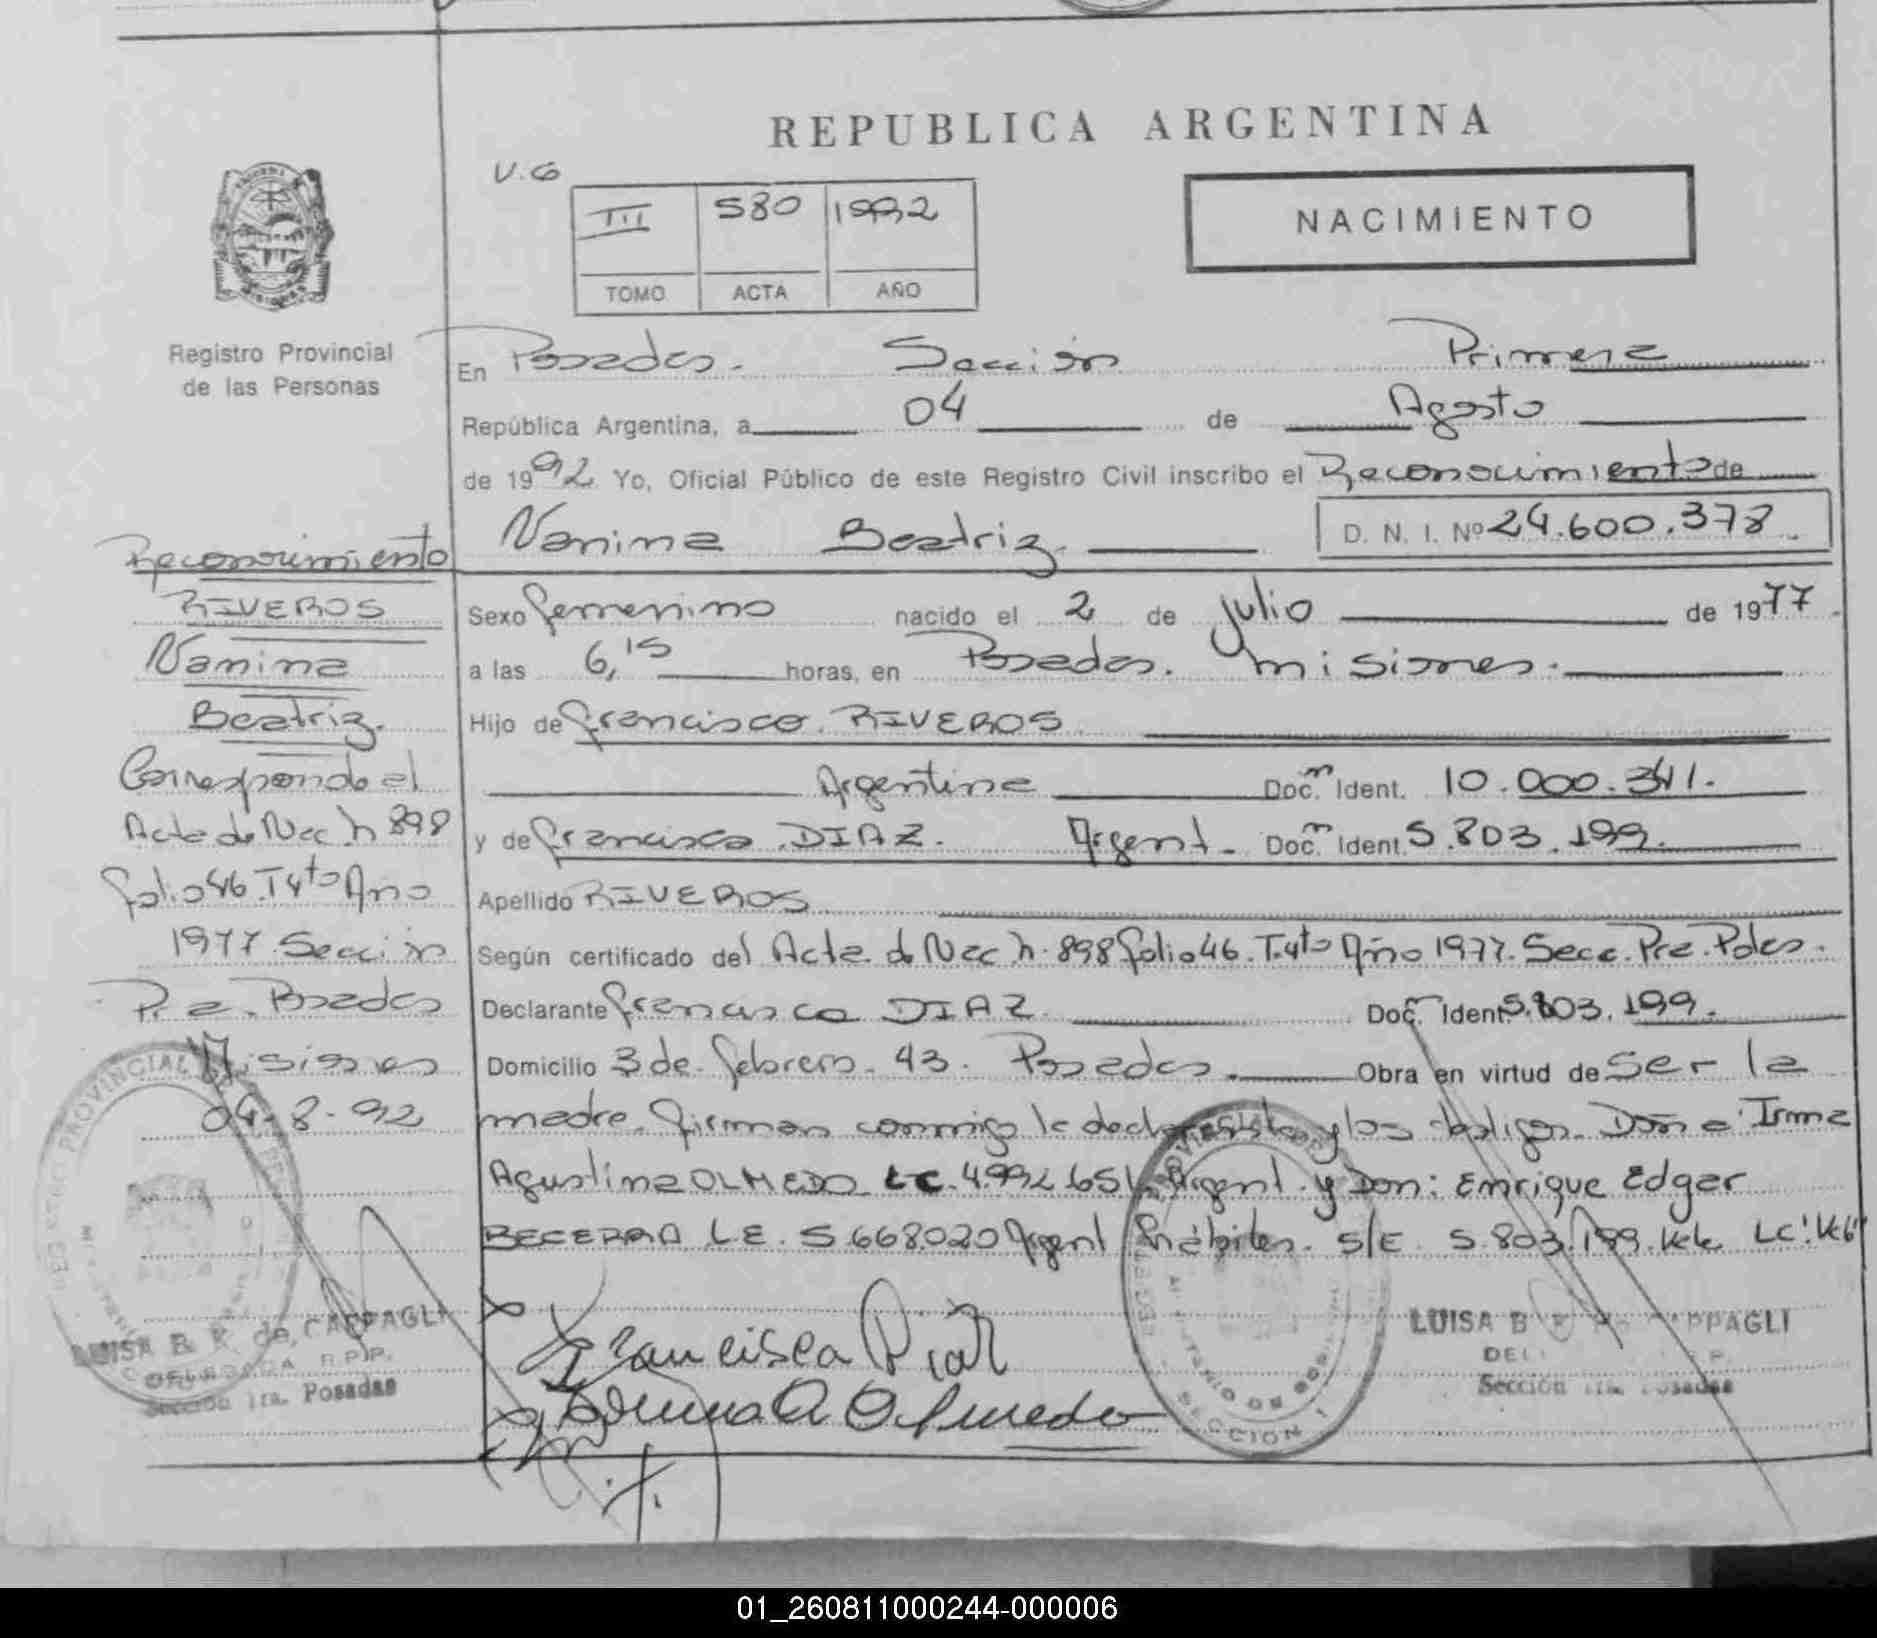 REPUBLICA ARGENTINA
V.G
III 580 1992
TOMO ACTA AÑO
NACIMIENTO
Registro Provincial
de las Personas
En Posadas. Sección Primera
República Argentina, a 04 de Agosto
de 1992 Yo, Oficial Público de este Registro Civil inscribo el Reconocimiento de
Vanina Beatriz. D. N. I. Nº 24.600.378
Sexo femenino nacido el 2 de julio de 1977
a las 6,15 horas, en Posadas. Misiones.
Hijo de Francisco RIVEROS
Argentina Doc.m Ident. 10.000.341.
y de Francisca DIAZ. Argent. Doc.m Ident. 5.803.199.
Apellido RIVEROS
Según certificado del Acta de Nac n. 898 folio 46. T. 4to Año 1977. Secc. Pra. Pdas.
Declarante Francisca DIAZ Doc. Ident. 5.803.199.
Domicilio 3 de febrero. 43. Posadas. Obra en virtud de Ser la
madre. firman conmigo la declarante y los testigos. Doña Irma
Agustina OLMEDO LC. 4.992.651 Argent. y Don: Enrique Edgar
BECERRA L.E. 5.668.020 Argent S/E 5.803.199. Vale LC!
Reconocimiento
RIVEROS
Vanina
Beatriz.
Corresponde al
Acta de Nac. n 898
folio 46. T 4to Año
1977. Sección
Pra. Posadas
Misiones
04-8-92
REGISTRO PROVINCIAL DE
LUISA B. K. de CAPPAGLI
DELEGADA R.P.P.
Sección 1ra. Posadas
Francisca Diaz
Irma A Olmedo
SECCION 1
LUISA B CAPPAGLI
Sección 1ra. Posadas
01_260811000244-000006